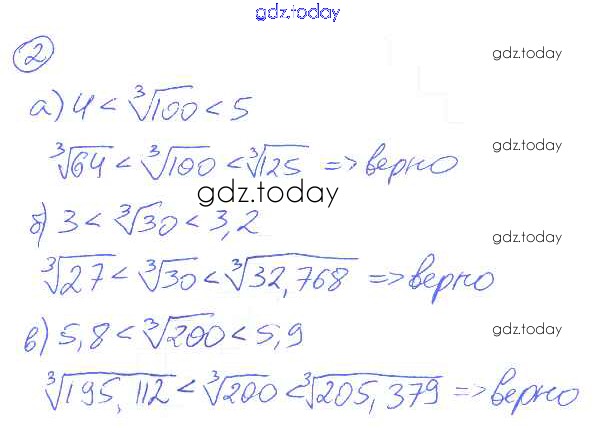 gdz.today
gdz.today
2
а) 4 < ∛100 < 5
gdz.today
∛64 < ∛100 < ∛125 => верно
gdz.today
б) 3 < ∛30 < 3,2
gdz.today
∛27 < ∛30 < ∛32,768 => верно
в) 5,8 < ∛200 < 5,9
gdz.today
∛195,112 < ∛200 < ∛205,379 => верно
gdz.today